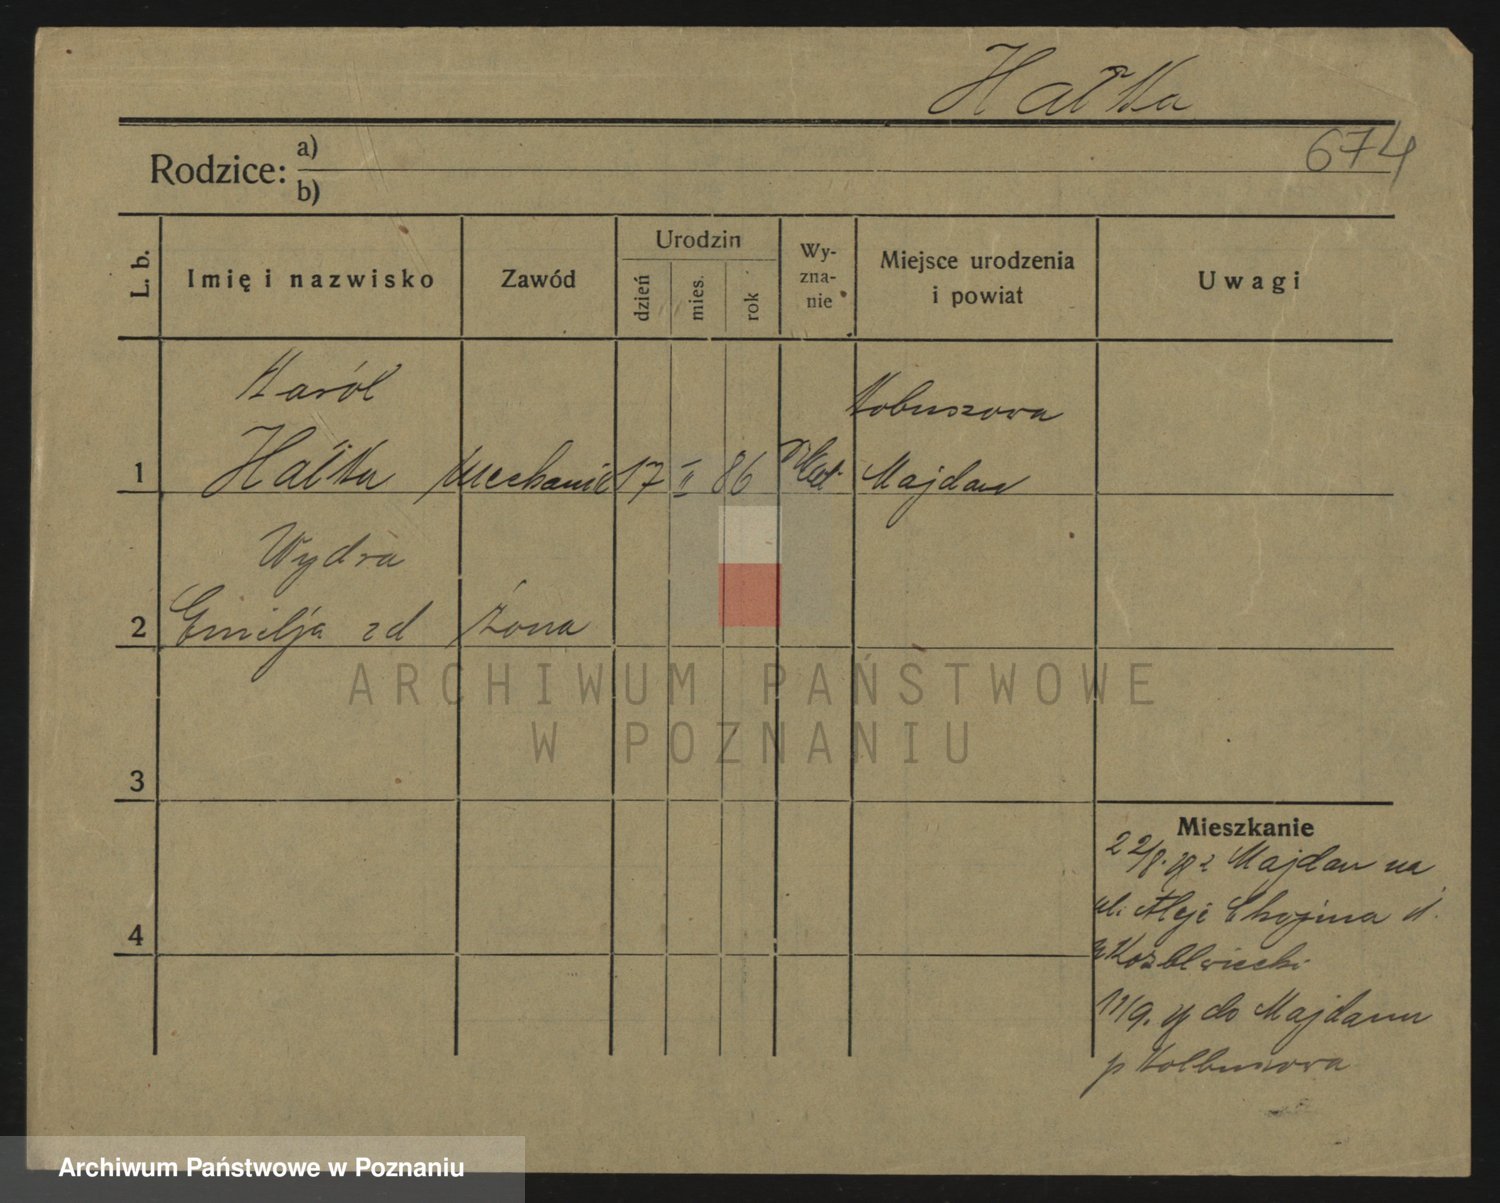 Hałka
674
Rodzice: a)
b)
L. b.
Imię i nazwisko
Zawód
Urodzin
dzień
mies.
rok
Wy-
zna-
nie
Miejsce urodzenia
i powiat
Uwagi
Karól
Kobuszowa
1 Hałka Mechanik 17 II 86 Rkat Majdan
Wydra
2 Emilja zd Żona
3
4
Mieszkanie
22/8. z Majdan na
ul. Aleje Chopina d.
11/9. do Majdanu
p Kolbuszowa
ARCHIWUM PAŃSTWOWE
W POZNANIU
Archiwum Państwowe w Poznaniu